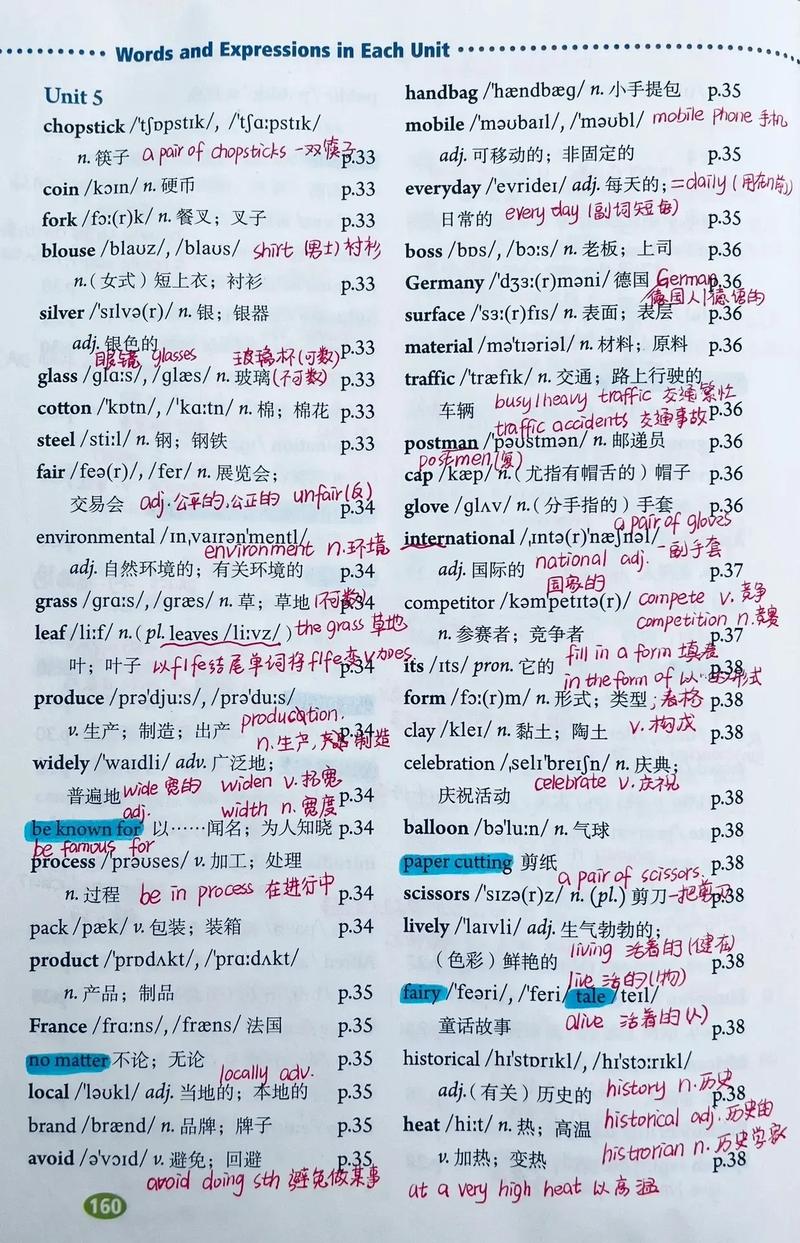 Words and Expressions in Each Unit
Unit 5
chopstick /'tʃɒpstɪk/, /'tʃɑ:pstɪk/
n. 筷子 a pair of chopsticks 一双筷子 p.33
coin /kɔɪn/ n. 硬币 p.33
fork /fɔ:(r)k/ n. 餐叉；叉子 p.33
blouse /blaʊz/, /blaʊs/ shirt (男士)衬衫
n.（女式）短上衣；衬衫 p.33
silver /'sɪlvə(r)/ n. 银；银器
adj. 银色的 p.33
眼镜 glasses 玻璃杯(可数)
glass /glɑ:s/, /glæs/ n. 玻璃 (不可数) p.33
cotton /'kɒtn/, /'kɑ:tn/ n. 棉；棉花 p.33
steel /sti:l/ n. 钢；钢铁 p.33
fair /feə(r)/, /fer/ n. 展览会；
交易会 adj.公平的,公正的 unfair(反) p.34
environmental /ɪnˌvaɪrən'mentl/
environment n.环境
adj. 自然环境的；有关环境的 p.34
grass /grɑ:s/, /græs/ n. 草；草地 (不可数) p.34
leaf /li:f/ n. (pl. leaves /li:vz/) the grass 草地
叶；叶子 以f/fe结尾单词将f/fe变v加es p.34
produce /prə'dju:s/, /prə'du:s/
v. 生产；制造；出产 production. p.34
n.生产, 制造
widely /'waɪdli/ adv. 广泛地；
普遍地 wide 宽的 widen v.拓宽 p.34
adj. width n.宽度
be known for 以……闻名；为人知晓 p.34
be famous for
process /'prəʊses/ v. 加工；处理
n. 过程 be in process 在进行中 p.34
pack /pæk/ v. 包装；装箱 p.34
product /'prɒdʌkt/, /'prɑ:dʌkt/
n. 产品；制品 p.35
France /frɑ:ns/, /fræns/ 法国 p.35
no matter 不论；无论 p.35
locally adv.
local /'ləʊkl/ adj. 当地的；本地的 p.35
brand /brænd/ n. 品牌；牌子 p.35
avoid /ə'vɔɪd/ v. 避免；回避 p.35
avoid doing sth 避免做某事
160
handbag /'hændbæg/ n. 小手提包 p.35
mobile /'məʊbaɪl/, /'məʊbl/ mobile phone 手机
adj. 可移动的；非固定的 p.35
everyday /'evrideɪ/ adj. 每天的； =daily (用在n前)
日常的 every day (副词短语) p.35
boss /bɒs/, /bɔ:s/ n. 老板；上司 p.36
Germany /'dʒɜ:(r)məni/ 德国 German p.36
德国人/德语的
surface /'sɜ:(r)fɪs/ n. 表面；表层 p.36
material /mə'tɪəriəl/ n. 材料；原料 p.36
traffic /'træfɪk/ n. 交通；路上行驶的
车辆 busy/heavy traffic 交通繁忙 p.36
traffic accidents 交通事故
postman /'pəʊstmən/ n. 邮递员 p.36
postmen(复)
cap /kæp/ n.（尤指有帽舌的）帽子 p.36
glove /glʌv/ n.（分手指的）手套 p.36
a pair of gloves
international /ˌɪntə(r)'næʃnəl/
一副手套
adj. 国际的 national adj. p.37
国家的
competitor /kəm'petɪtə(r)/ compete v. 竞争
competition n.竞赛
n. 参赛者；竞争者 p.37
its /ɪts/ pron. 它的 fill in a form 填表 p.38
in the form of 以…的形式
form /fɔ:(r)m/ n. 形式；类型 ;表格 p.38
clay /kleɪ/ n. 黏土；陶土 v. 构成 p.38
celebration /ˌselɪ'breɪʃn/ n. 庆典；
庆祝活动 celebrate v.庆祝 p.38
balloon /bə'lu:n/ n. 气球 p.38
paper cutting 剪纸 p.38
a pair of scissors.
scissors /'sɪzə(r)z/ n. (pl.) 剪刀 一把剪刀 p.38
lively /'laɪvli/ adj. 生气勃勃的；
（色彩）鲜艳的 living 活着的(健在) p.38
live 活的(物)
fairy /'feəri/, /'feri/ tale /teɪl/
童话故事 alive 活着的(人) p.38
historical /hɪ'stɒrɪkl/, /hɪ'stɔ:rɪkl/
adj.（有关）历史的 history n.历史 p.38
historical adj.历史的
heat /hi:t/ n. 热；高温
histrorian n.历史学家
v. 加热；变热 p.38
at a very high heat 以高温